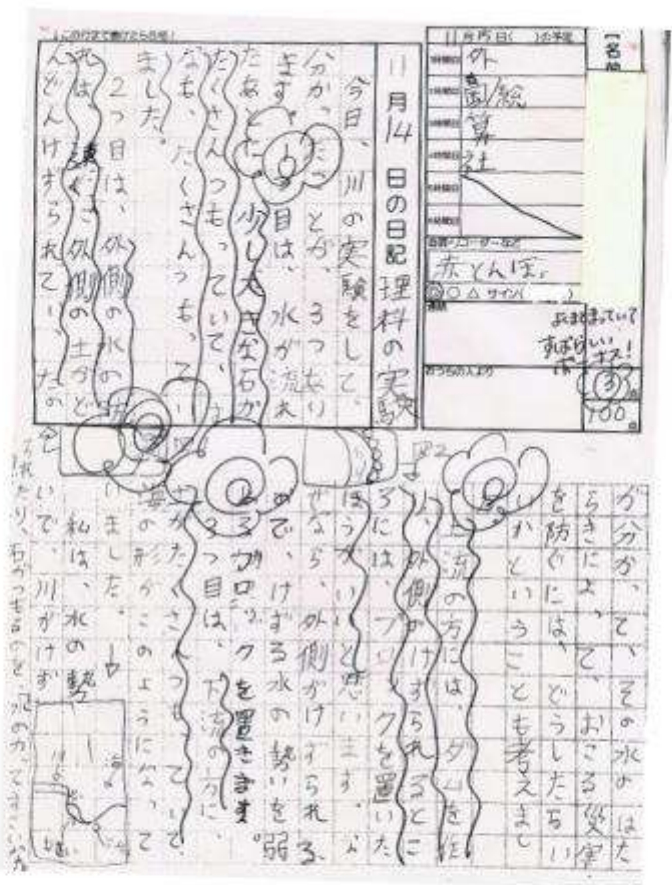 ↓この行まで書けたら合格！
【名前
11月15日( )の予定
外
図/絵
算
社
赤とんぼ
◎○△ サイン( )
おうちの人より
よくまとまっていて
すばらしい
100
11月14日の日記 理科の実験
今日、川の実験をして、
分かったことが、3つあり
ます。1つ目は、水が流れ
たあとに、少し大きな石が
たくさんつもっていて、
なも、たくさんつもってい
ました。
2つ目は、外側の水の
外側の土がど
んどんけずられていった
が分かって、その水のはた
らきによって、おこる災害
を防ぐには、どうしたらい
いかということも考えまし
上流の方には、ダムを作
り、外側がけずられるとこ
ろには、ブロックを置いた
ほうがいいと思います。な
ぜなら、外側がけずられる
ので、けずる水の勢いを弱
めるブロックを置きます。
3つ目は、下流の方に、
たくさんつもっていて、
海の形がこのようになって
いました。→
私は、水の勢
いで、川がけず
図2